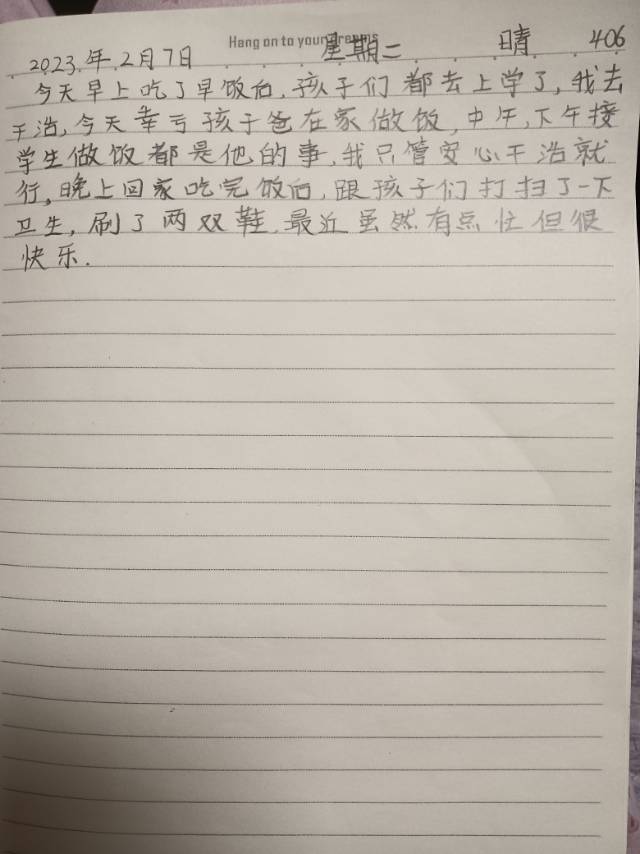 Hang on to your dreams
2023年2月7日 星期二 晴 406
今天早上吃了早饭后,孩子们都去上学了,我去
干活,今天幸亏孩子爸在家做饭,中午,下午接
学生做饭都是他的事,我只管安心干活就
行,晚上回家吃完饭后,跟孩子们打扫了一下
卫生,刷了两双鞋,最近虽然有点忙但很
快乐.